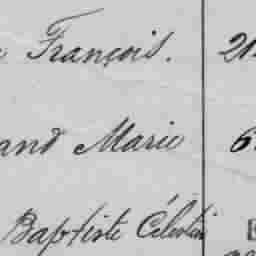 François. 21
and Marie 6
Baptiste Célestin